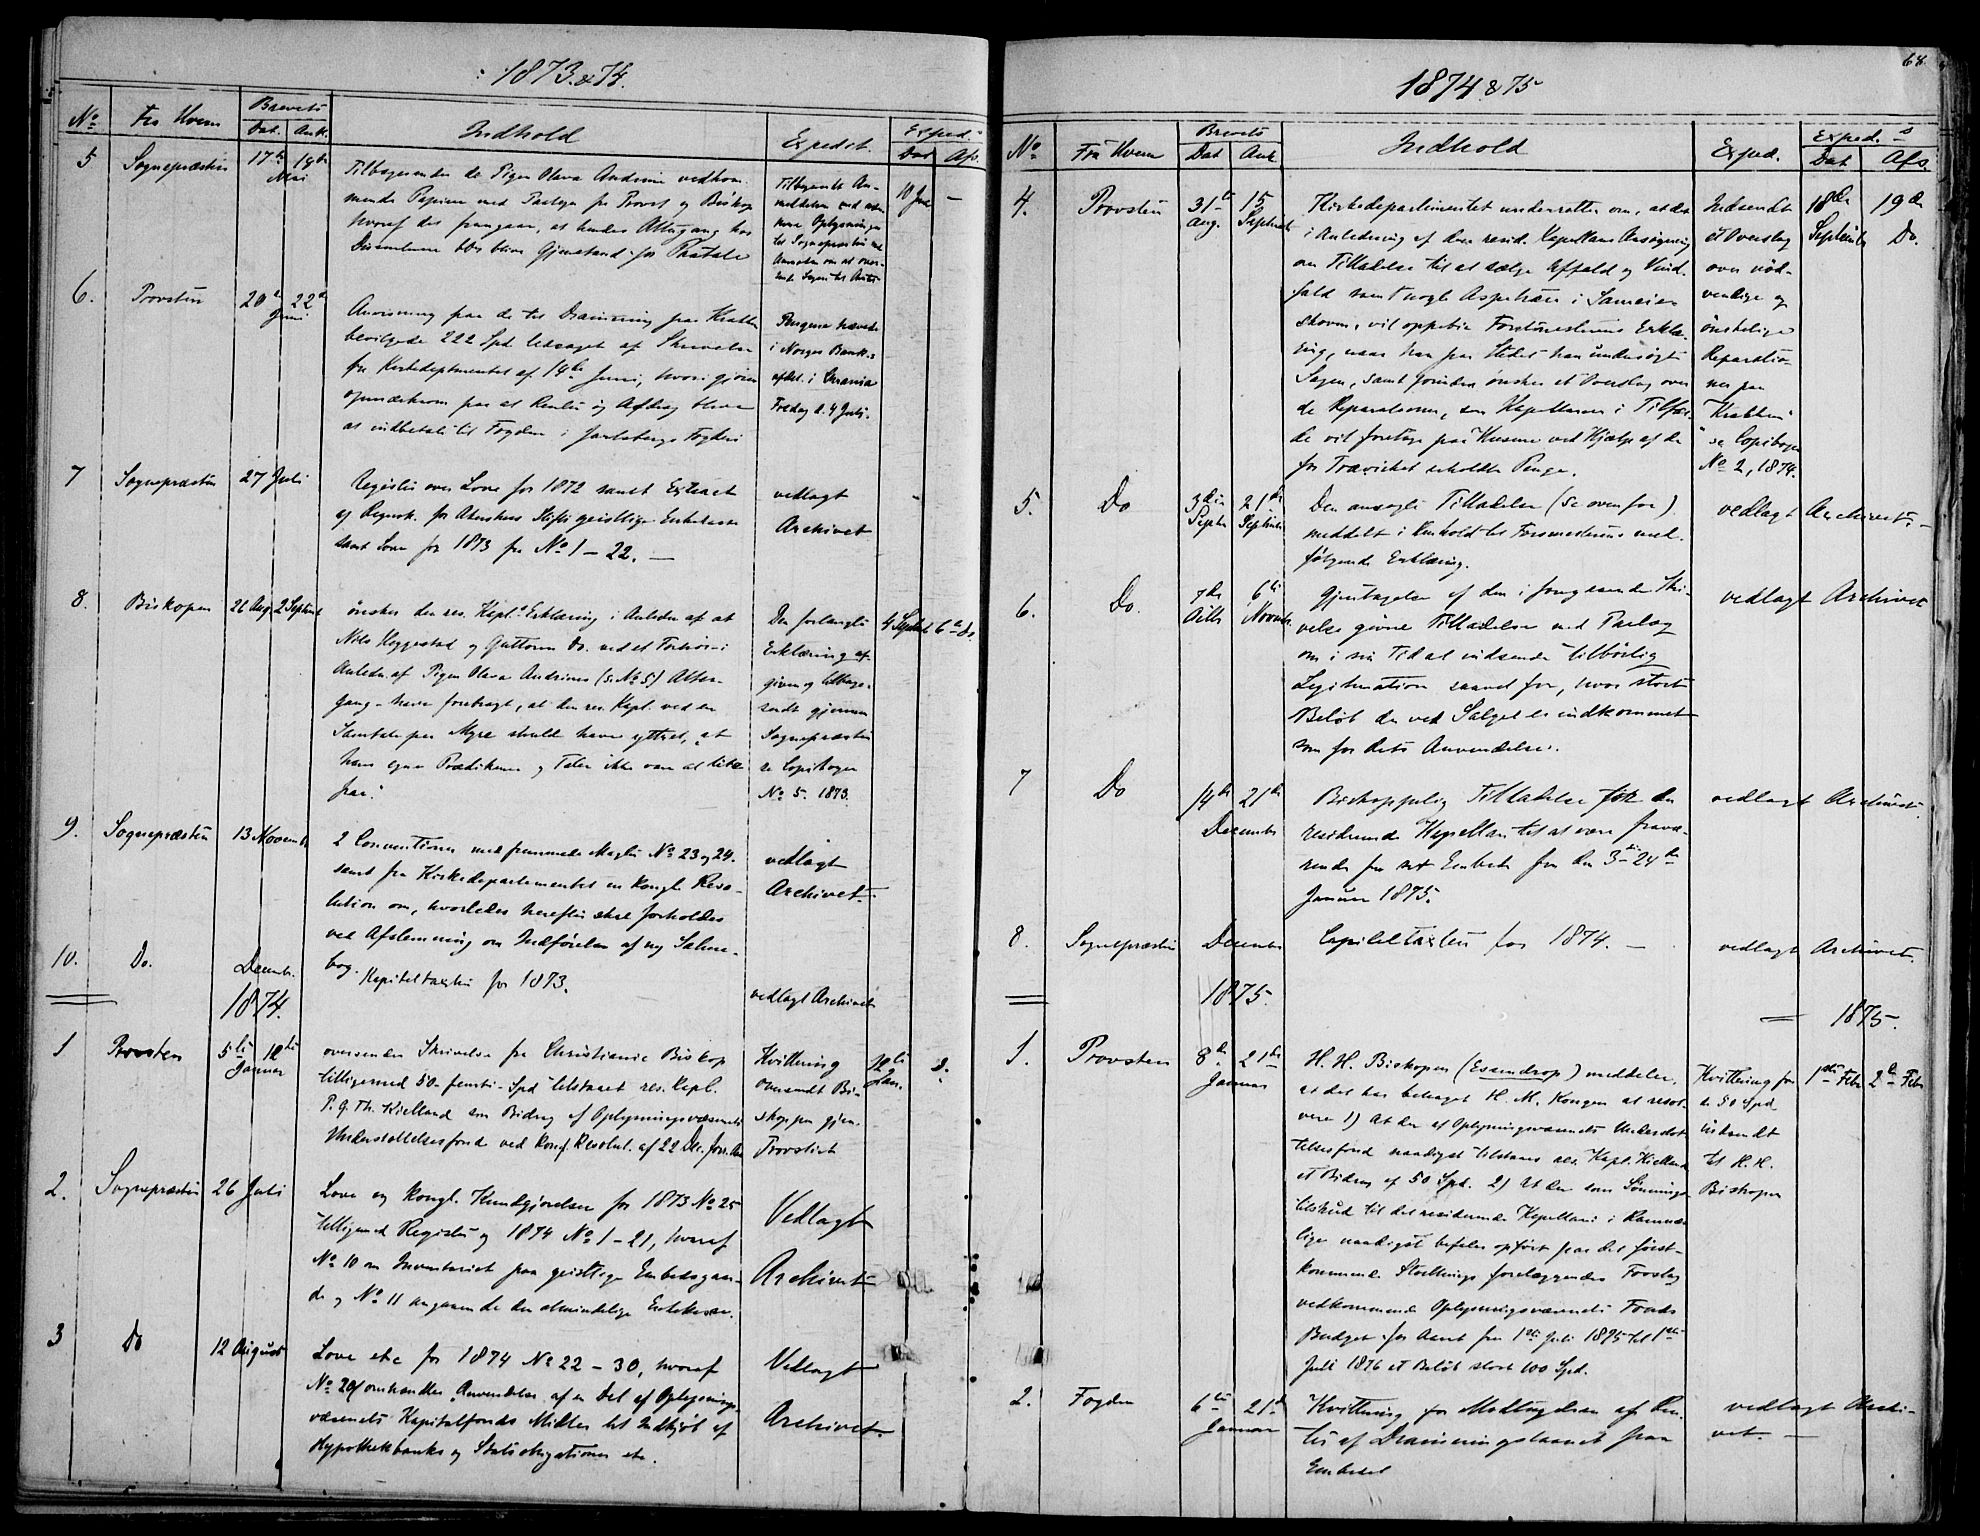 1873 & 74.
No
Fra Hvem
Brevets
Dat.
Ank.
Indhold
Expedit.
Exped.s
Dat
Afs.
5
Sognepræsten
17de 18de
Mai
Tilbagesender de Pigen Olava Andrine vedkom-
mende Papirer med Paategn. fra Provst og Biskop
hvoraf det fremgaar, at hendes Altergang hos
Dissenterne ikke bliver Gjenstand for Paatale
Tilbagesendt An-
meldelsen med
Oplysninger
til Sognepræsten med
Anmoden om at over-
sende Sagen til
10 Juni
—
6.
Provsten
20de 22de
Juni
Anvisning paa de til Drainering paa Krabben
bevilgede 222 Spd ledsaget af Skrivelse
fra Kirkedepartmentet af 14de Juni, hvori gjøres
opmærksom paa at Renter og Afdrag bliver
at indbetale til Fogden i Jarlsbergs Fogderi
Pengene hævede
i Norges Bank-s
afdel. i Drammen
Fredag d. 4 Juli.
7
Sognepræsten
27 Juli
Register over Love for 1872 samt Extract
af Regnsk. for Akershus Stifts geistlige Enkekasse
samt Love for 1873 fra No 1 – 22. —
vedlagt
Archivet
8.
Biskopen
26 Aug. 2 Septemb
ønsker den res. Kapls Erklæring i Anledn af at
Nils Heggestad og Guttorm Do. ved et Forhør i
Anledn. af Pigen Olava Andrines (se No 5) Alter-
gang have forebragt, at den res. Kapl. ved en
Samtale paa Myre skulde have yttret, at
hans egne Prædikener og Taler ikke vare at lide
paa.
Den forlangte
Erklæring af-
given og tilbage-
sendt gjennem
Sognepræsten
se Copibogen
No 5. 1873.
4 Septemb 6te do
9.
Sognepræsten
13 Novembr
2 Conventioner med fremmede Magter No 23 og 24.
samt fra Kirkedepartementet en kongl. Reso-
lution om, hvorledes herefter skal forholdes
ved Afstemning om Indførelse af ny Salme-
bog.
vedlagt
Archivet.
10.
Do.
Decembr.
Kapiteltaxten for 1873.
vedlagt Archivet
1874.
1
Provsten
5te 12te
Januar
oversender Skrivelse fra Christiania Biskop
tilligemed 50 – femti – Spd tilstaaet res. Kapl.
P. G. Th. Kielland som Bidrag af Oplysningsvæsenets
Understøttelsesfonde ved kongl. Resolut. af 22 Dec. forr. Aar
Kvittering
oversendt Bi-
skoppen gjen.
Provstiet
12te
Jan.
2.
Sognepræsten
26 Juli
Love og kongl. Kundgjørelser for 1873 No 25
tilligemed Register og 1874 No 1 – 21, hvoraf
No 10 om Inventariet paa geistlige Embedsgaar-
de og No 11 angaaende den almindelige Enkekasse.
Vedlagt
Archivet
3
Do
12 August
Love etc for 1874 No 22 – 30, hvoraf
No 29 omhandler Anvendelse af en Del af Oplysnings-
væsenets Kapitalfonds Midler til Indkjøb af
Hypothekbanks og Statsobligationer etc.
Vedlagt
Archivet.
68
1874 & 75
No
Fra Hvem
Brevets
Dat
Ank
Indhold
Exped.
Exped.s
Dat
Afs.
4.
Provsten
31te 15
Aug. Septemb
Kirkedepartementet underretter om, at det
i Anledning af den resid. Kapellans Ansøgning
om Tilladelse til at sælge Affald og Vind-
fald samt nogle Aspetræer i Sameie
skoven, vil oppebie Forstmesterens Erklæ-
ring, naar han paa Stedet har undersøgt
Sagen, samt forinden ønsker et Overslag over
de Reparationer, som Kapellanen i Tilfæl-
de vil foretage paa Husene ved Hjælp af de
for Trævirket erholdte Penge.
Indsendt
et Overslag
over nød-
vendige og
ønskelige
Reparatio-
ner paa
"Krabben"
se Copibogen
No 2, 1874.
18de 19de
Septemb Do.
5.
Do
3die 21de
Septr Septemb
Den ansøgte Tilladelse (Se ovenfor)
meddelt i Henhold til Forstmesterens med-
følgende Erklæring.
vedlagt Archivet. –
6.
Do.
7de 6te
Octb Novemb.
Gjentagelse af den i foregaaende Skri-
velse givne Tilladelse med Paalæg
om i sin Tid at indsende tilbørlig
Legitimation saavel for, hvor stort
Beløb der ved Salget er indkommet
som for dets Anvendelse.
vedlagt Archivet
7
Do
14de 21de
December
Biskoppelig Tilladelse for den
residerende Kapellan til at være fravæ-
rende fra sit Embede fra den 3die – 24de
Januar 1875.
vedlagt Archivet.
8.
Sognepræsten
December
Capiteltaxten for 1874. —
vedlagt Archivet.
1875.
1875.
1.
Provsten
8de 21de
Januar
H. H. Biskopen (Essendrop) meddeler,
at det har behaget H. M. Kongen at resol-
vere 1) At der af Oplysningsvæsenets Understøt-
telsesfond naadigst tilstaaes res. Kapl. Kielland
et Bidrag af 50 Spd. 2) At der som Lønnings-
tilskud til det residerende Kapellani i Ramnæs
lige naadigst befales opført paa det først-
kommende Storthing forelæggendes Forslag
vedkommende Oplysningsvæsenets Fonds
Budget for Aaret fra 1ste Juli 1875 til 1ste
Juli 1876 et Beløb stort 100 Spd.
Kvittering for
de 50 Spd
indsendt
til H. H.
Biskopen
1ste Feb 2de Feb
2.
Fogden
6te 21de
Januar
Kvittering for Modtagelsen af Ren-
ter af Draineringslaanet paa
Embedet
vedlagt Archi-
vet. —